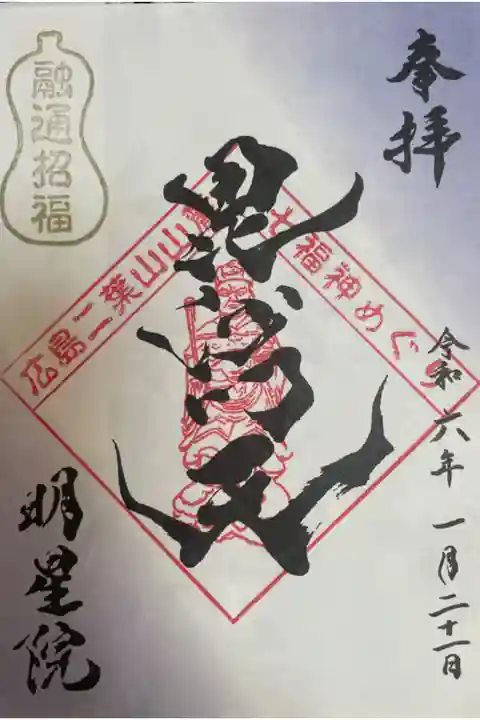 奉拝
令和六年一月二十一日
毘沙門天
広島二葉山山
七福神めぐり
融通招福
明星院